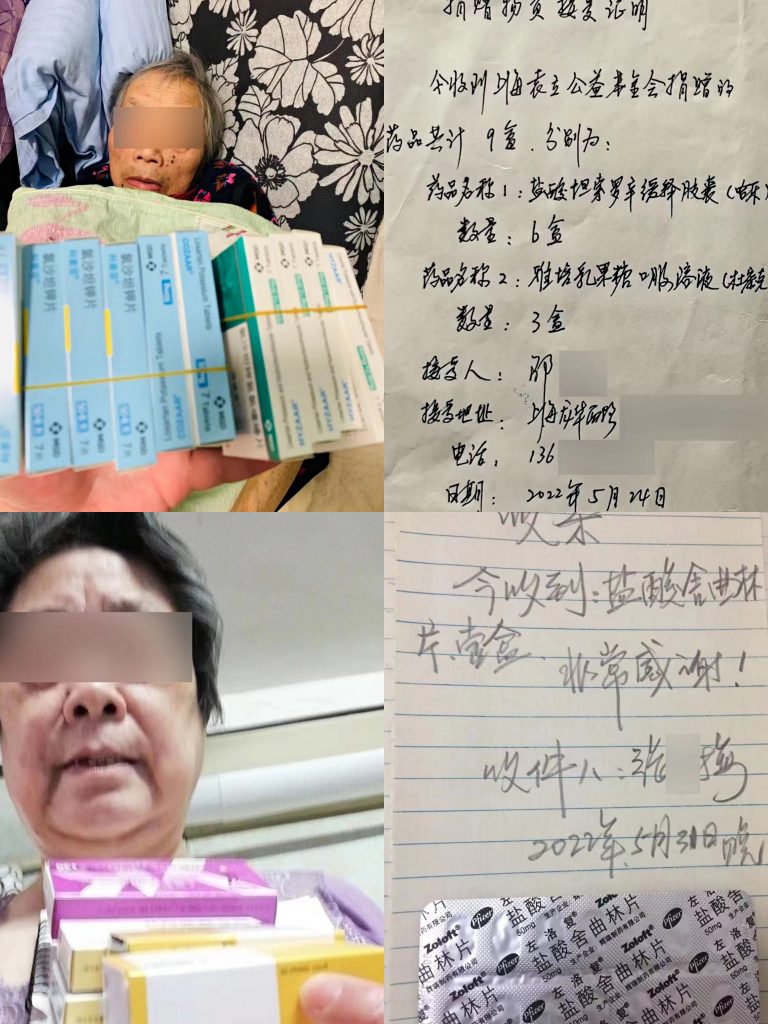 氯沙坦钾片
7片
MSD
氯沙坦钾片
7片
MSD
7片
MSD
Losartan Potassium Tablets
COZAAR®
7 Tablets
MSD
Losartan Potassium Tablets
COZAAR®
7 Tablets
MSD
HYZAAR®
MSD
HYZAAR®
HYZAAR®
HYZAAR®
捐赠物资接受证明
今收到上海袁立公益基金会捐赠的
药品共计 9盒，分别为：
药品名称1：盐酸坦索罗辛缓释胶囊（哈乐）
数量：6盒
药品名称2：雅培乳果糖口服溶液（杜密克
数量：3盒
接受人：邢
接受地址：上海龙华西路
电话：136
日期：2022年5月24日
收条
今收到：盐酸舍曲林
片、壹盒
非常感谢！
收件人：张 梅
2022年.5月31日晚
左洛复®
盐酸舍曲林片
50mg
Zoloft®
Pfizer
辉瑞制药有限公司